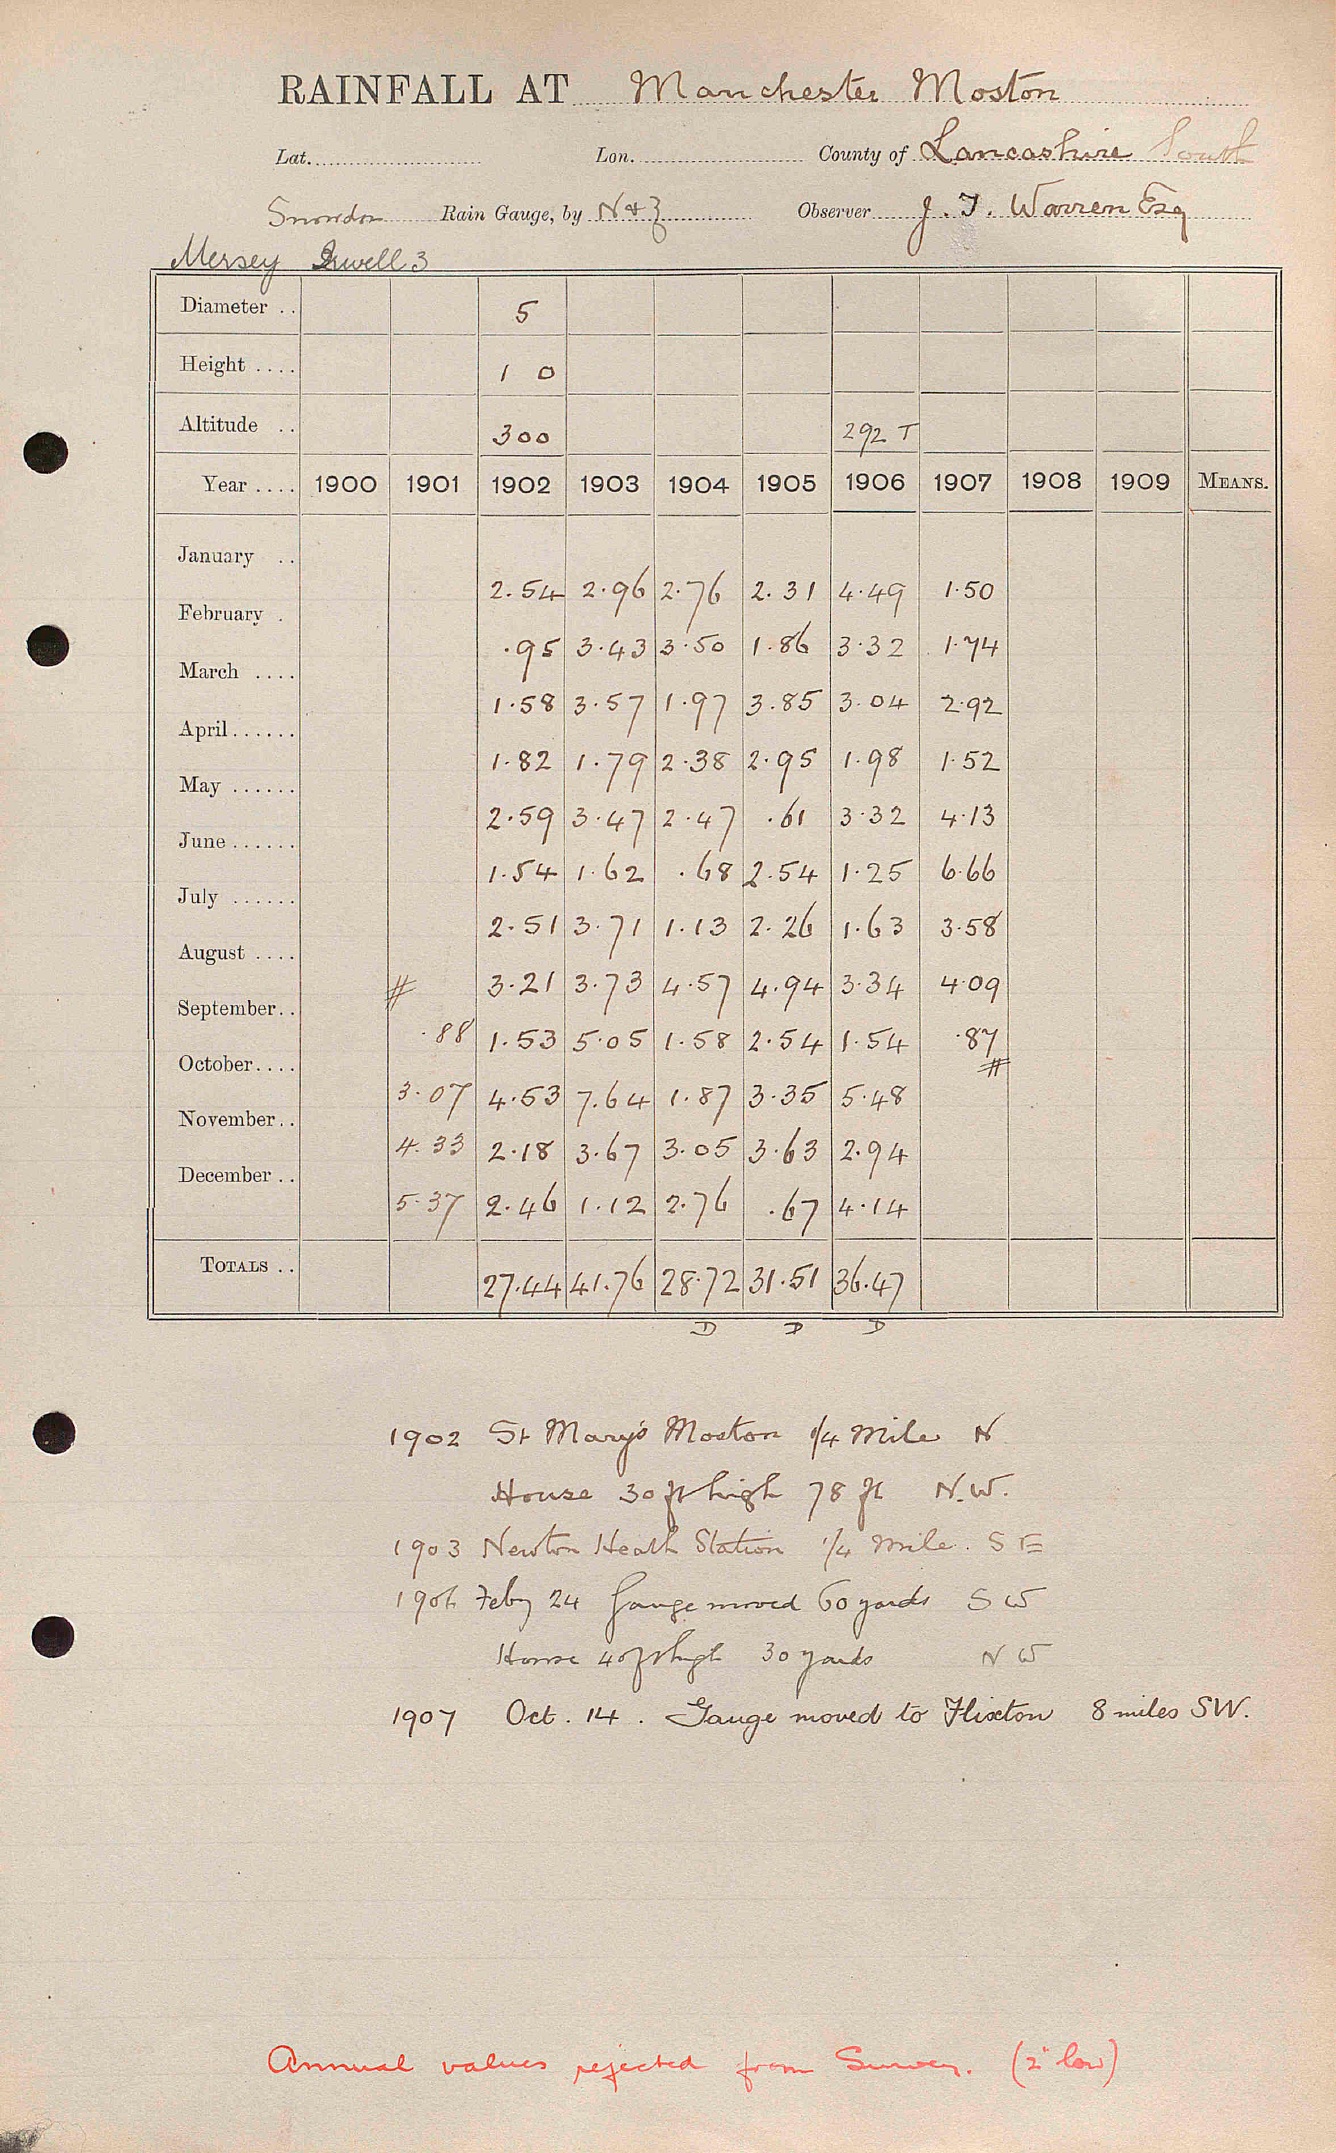 RAINFALL AT Manchester Moston
Lat. Lon. County of Lancashire South
Snowdon Rain Gauge, by N & Z Observer J. T. Warren Esq
Mersey Irwell 3
Diameter .. 5
Height .... 1 0
Altitude .. 300 292 T
Year .... 1900 1901 1902 1903 1904 1905 1906 1907 1908 1909 MEANS.
January .. 2.54 2.96 2.76 2.31 4.49 1.50
February . .95 3.43 3.50 1.86 3.32 1.74
March .... 1.58 3.57 1.97 3.85 3.04 2.92
April...... 1.82 1.79 2.38 2.95 1.98 1.52
May ...... 2.59 3.47 2.47 .61 3.32 4.13
June...... 1.54 1.62 .68 2.54 1.25 6.66
July ...... 2.51 3.71 1.13 2.26 1.63 3.58
August .... # 3.21 3.73 4.57 4.94 3.34 4.09
September.. .88 1.53 5.05 1.58 2.54 1.54 .87 #
October.... 3.07 4.53 7.64 1.87 3.35 5.48
November.. 4.33 2.18 3.67 3.05 3.63 2.94
December .. 5.37 2.46 1.12 2.76 .67 4.14
TOTALS .. 27.44 41.76 28.72 31.51 36.47
D D D
1902 St Mary's Moston 1/4 Mile N
House 30 ft high 78 ft N.W.
1903 Newton Heath Station 1/4 Mile. S E
1906 Feby 24 Gauge moved 60 yards S W
House 40 ft high 30 yards N W
1907 Oct. 14. Gauge moved to Flixton 8 miles SW.
Annual values rejected from Survey. (2" low)